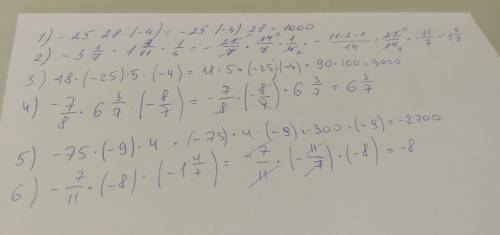 1) - 25 · 28 · (-4) = -25 · (-4) · 28 = 1000
2) - 3 1/7 · 1 3/11 · 1/4 = - 22/7 · 14/11 · 1/4
3) 18 · (-25) · 5 · (-4) = 18 · 5 · (-25) · (-4) = 90 · 100 = 9000
4) - 7/8 · 6 3/7 · (- 8/7) = - 7/8 · (- 8/7) · 6 3/7 = 6 3/7
5) -75 · (-9) · 4 = (-75) · 4 · (-9) = -300 · (-9) = -2700
6) - 7/11 · (-8) · (-1 4/7) = - 7/11 · (- 11/7) · (-8) = -8